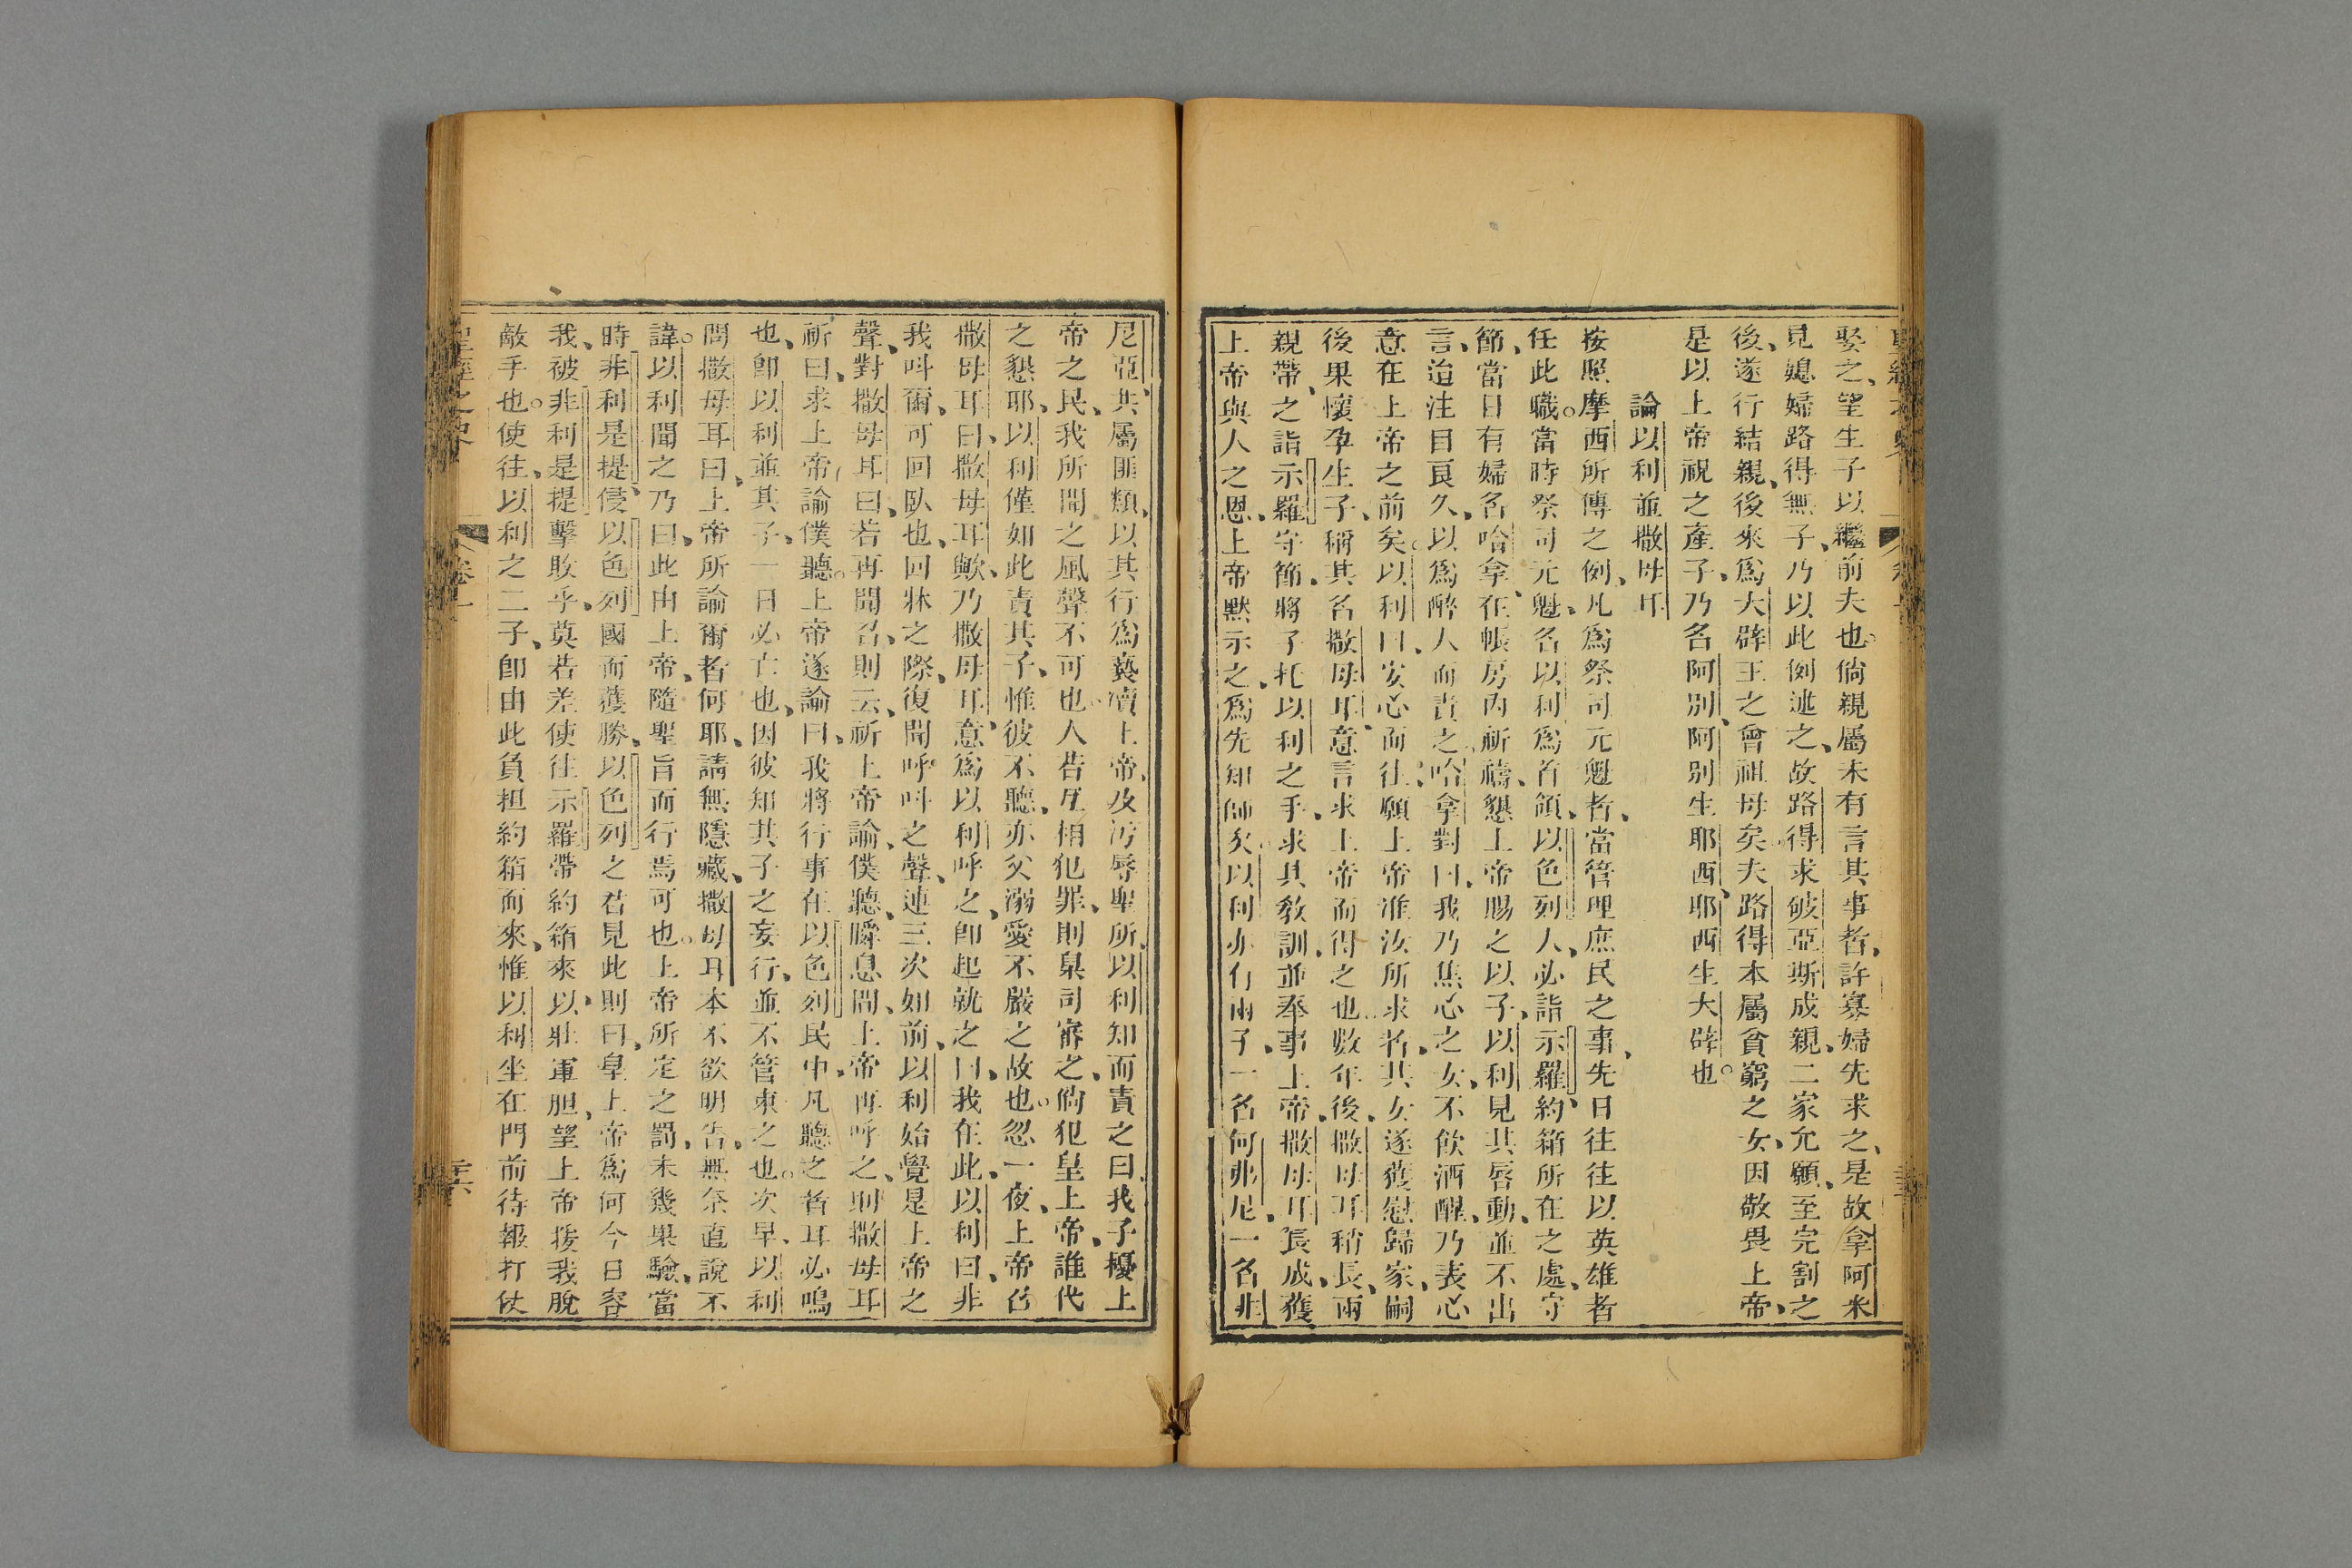 娶之、望生子以繼前夫也。倘親屬未有言其事者、許寡婦先求之、是故拿阿米
見媳婦路得無子、乃以此例述之、故路得求破亞斯成親、二家允願、至完割之
後、遂行結親、後來爲大辟王之曾祖母矣。夫路得本屬貧窮之女、因敬畏上帝、
是以上帝視之產子、乃名阿別、阿別生耶西、耶西生大辟也。
論以利並撒母耳
按照摩西所傳之例、凡爲祭司元魁者、當管理庶民之事、先日往往以英雄者
任此職。當時祭司元魁、名以利爲首領、以色列人、必詣示羅、約箱所在之處、守
節、當日有婦名哈拿、在帳房內祈禱、懇上帝賜之以子、以利見其唇動、並不出
言、迨注目良久、以爲醉人而責之、哈拿對曰、我乃焦心之女、不飲酒醒、乃表心
意在上帝之前矣。以利曰、安心而往、願上帝准汝所求者、其女遂獲慰歸家、嗣
後果懷孕生子、稱其名撒母耳、意言求上帝而得之也。數年後、撒母耳稍長、兩
親帶、之詣示羅守節、將子托以利之手、求其教訓、並奉事上帝、撒母耳長成、獲
上帝與人之恩、上帝默示之、爲先知師矣。以利亦有兩子、一名何弗尼、一名非
尼亞、其屬匪類、以其行爲褻瀆上帝、及污辱聖所、以利知而責之曰、我子擾上
帝之民、我所聞之風聲不可也。人若互相犯罪、則臬司審之、倘犯皇上帝、誰代
之懇耶、以利僅如此責其子、惟彼不聽、亦父溺愛不嚴之故也。忽一夜、上帝召
撒母耳曰、撒母耳歟、乃撒母耳意爲以利呼之、卽起就之曰、我在此、以利曰、非
我呌爾、可回臥也、回牀之際、復聞呼呌之聲、連三次如前、以利始覺是上帝之
聲、對撒母耳曰、若再聞召、則云、祈上帝諭、僕聽、瞬息間、上帝再呼之、則撒母耳
祈曰、求上帝諭僕聽。上帝遂諭曰、我將行事在以色列民中、凡聽之者耳必鳴
也、卽以利並其子、一日必亡也、因彼知其子之妄行、並不管束之也。次早、以利
問撒母耳曰、上帝所諭爾者何耶、請無隱藏、撒母耳本不欲明告、無奈直說不
諱。以利聞之乃曰、此由上帝、隨聖旨而行焉可也。上帝所定之罰、未幾果驗、當
時非利是提侵以色列國而獲勝、以色列之君見此則曰、皇上帝爲何今日容
我、被非利是提擊敗乎、莫若差使往示羅帶約箱來、以壯軍胆、望上帝援我脫
敵手也。使往、以利之二子、卽由此負担約箱而來、惟以利坐在門前待報打仗
聖經之史 卷一